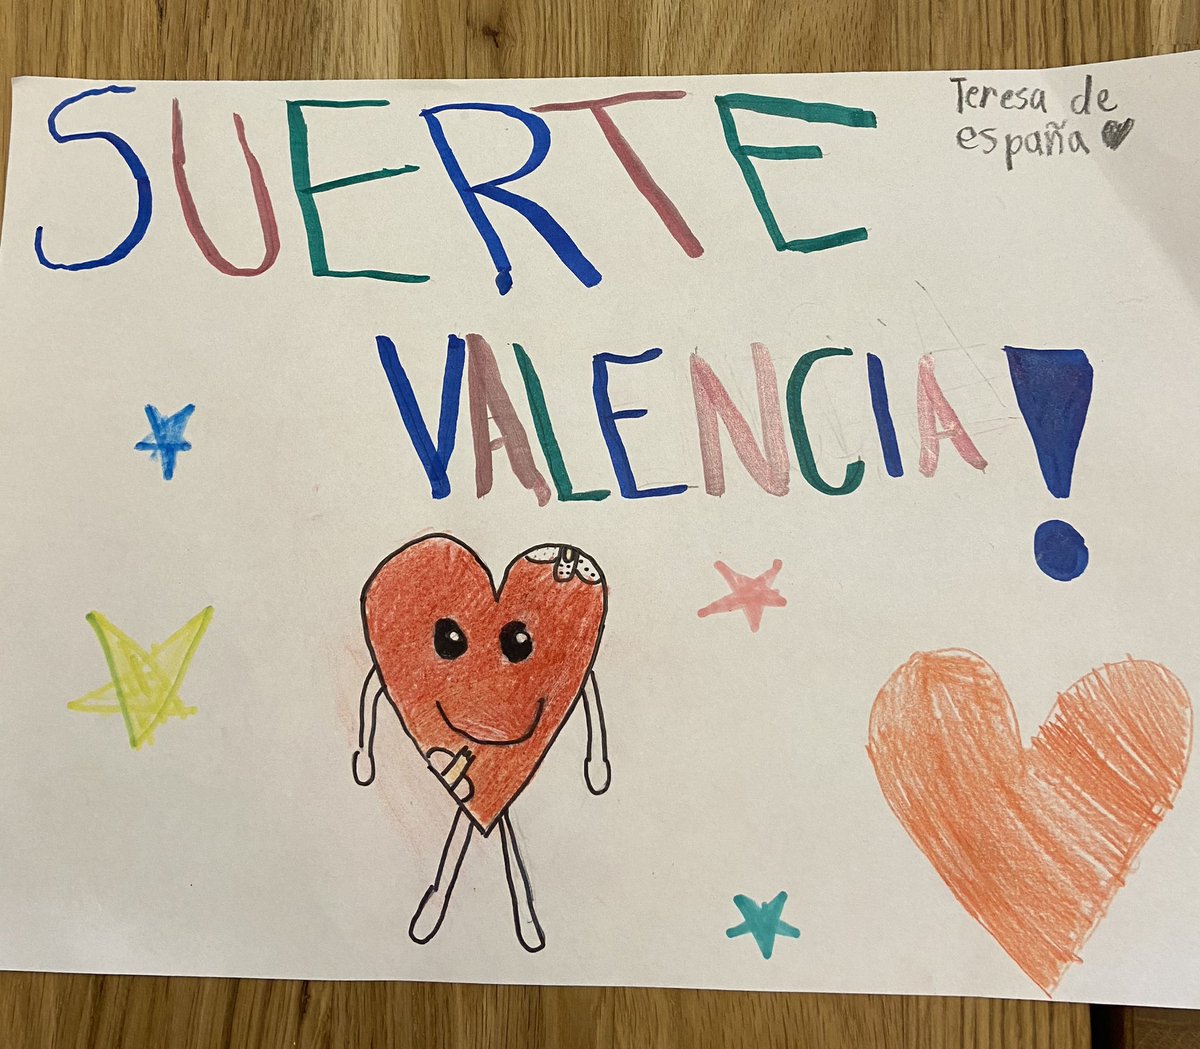 SUERTE
Teresa de
españa
VALENCIA!